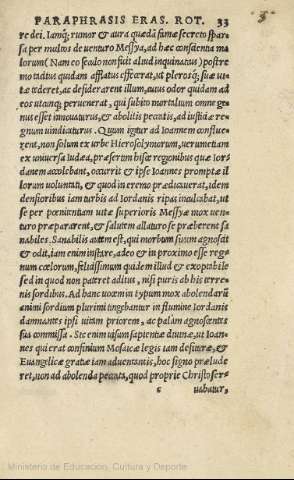 PARAPHRASIS ERAS. ROT. 33
re dei. Iamq́; rumor & aura quædã famæ secreto spar
sa per multos de uenturo Messya, ad hæc conscientia ma
lorum (Nam eo seculo non fuit aliud inquinatius) postre
mo tacitus quidam afflatus effecerat, ut plerosq; suæ ui
tæ tæderet, ac desiderarent illum, cuius odor quidam ad
eos utcunq; peruenerat, qui subito mortalium omne ge
nus esset innouaturus, & abolitis peccatis, ad iustitiæ re
gnum uindicaturus. Quum igitur ad Ioannem conflue
rent, non solum ex urbe Hierosolymorum, uerumetiam
ex uniuersa Iudæa, præsertim hisce regionibus quæ Ior
danem accolebant, occurrit & ipse Ioannes promptæ il
lorum uoluntati, & quod in eremo prædicauerat, idem
densioribus iam turbis ad Iordanis ripas inculcabat, ut
se per pœnitentiam uitæ superioris Messyæ mox uen
turo præpararent, & salutem allaturo se præberent sa
nabiles. Sanabilis autem est, qui morbum suum agnoscit
& odit, iam enim instare, adeoq; in proximo esse reg
num cœlorum, felicissimum quidem illud & exoptabile
sed in quod non pateret aditus, nisi puris ab his terre
nis sordibus. Ad hanc uocem in typum mox abolendarũ
animi sordium plurimi tingebantur in flumine Iordanis
damnantes ipsi uitam priorem, ac palam agnoscentes
sua commissa. Sic enim uisum sapientiæ diuinæ, ut Ioan-
nes qui erat confinium Mosaicæ legis iam desituræ, &
Euangelicæ gratiæ iam aduentantis, hoc signo prælude
ret, non ad abolenda peccata, quod proprie Christo ser-
c uabatur,
Ministerio de Educación, Cultura y Deporte